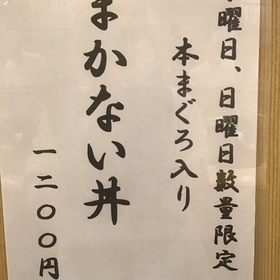 曜日、日曜日数量限定
本まぐろ入り
まかない丼
一二〇〇円